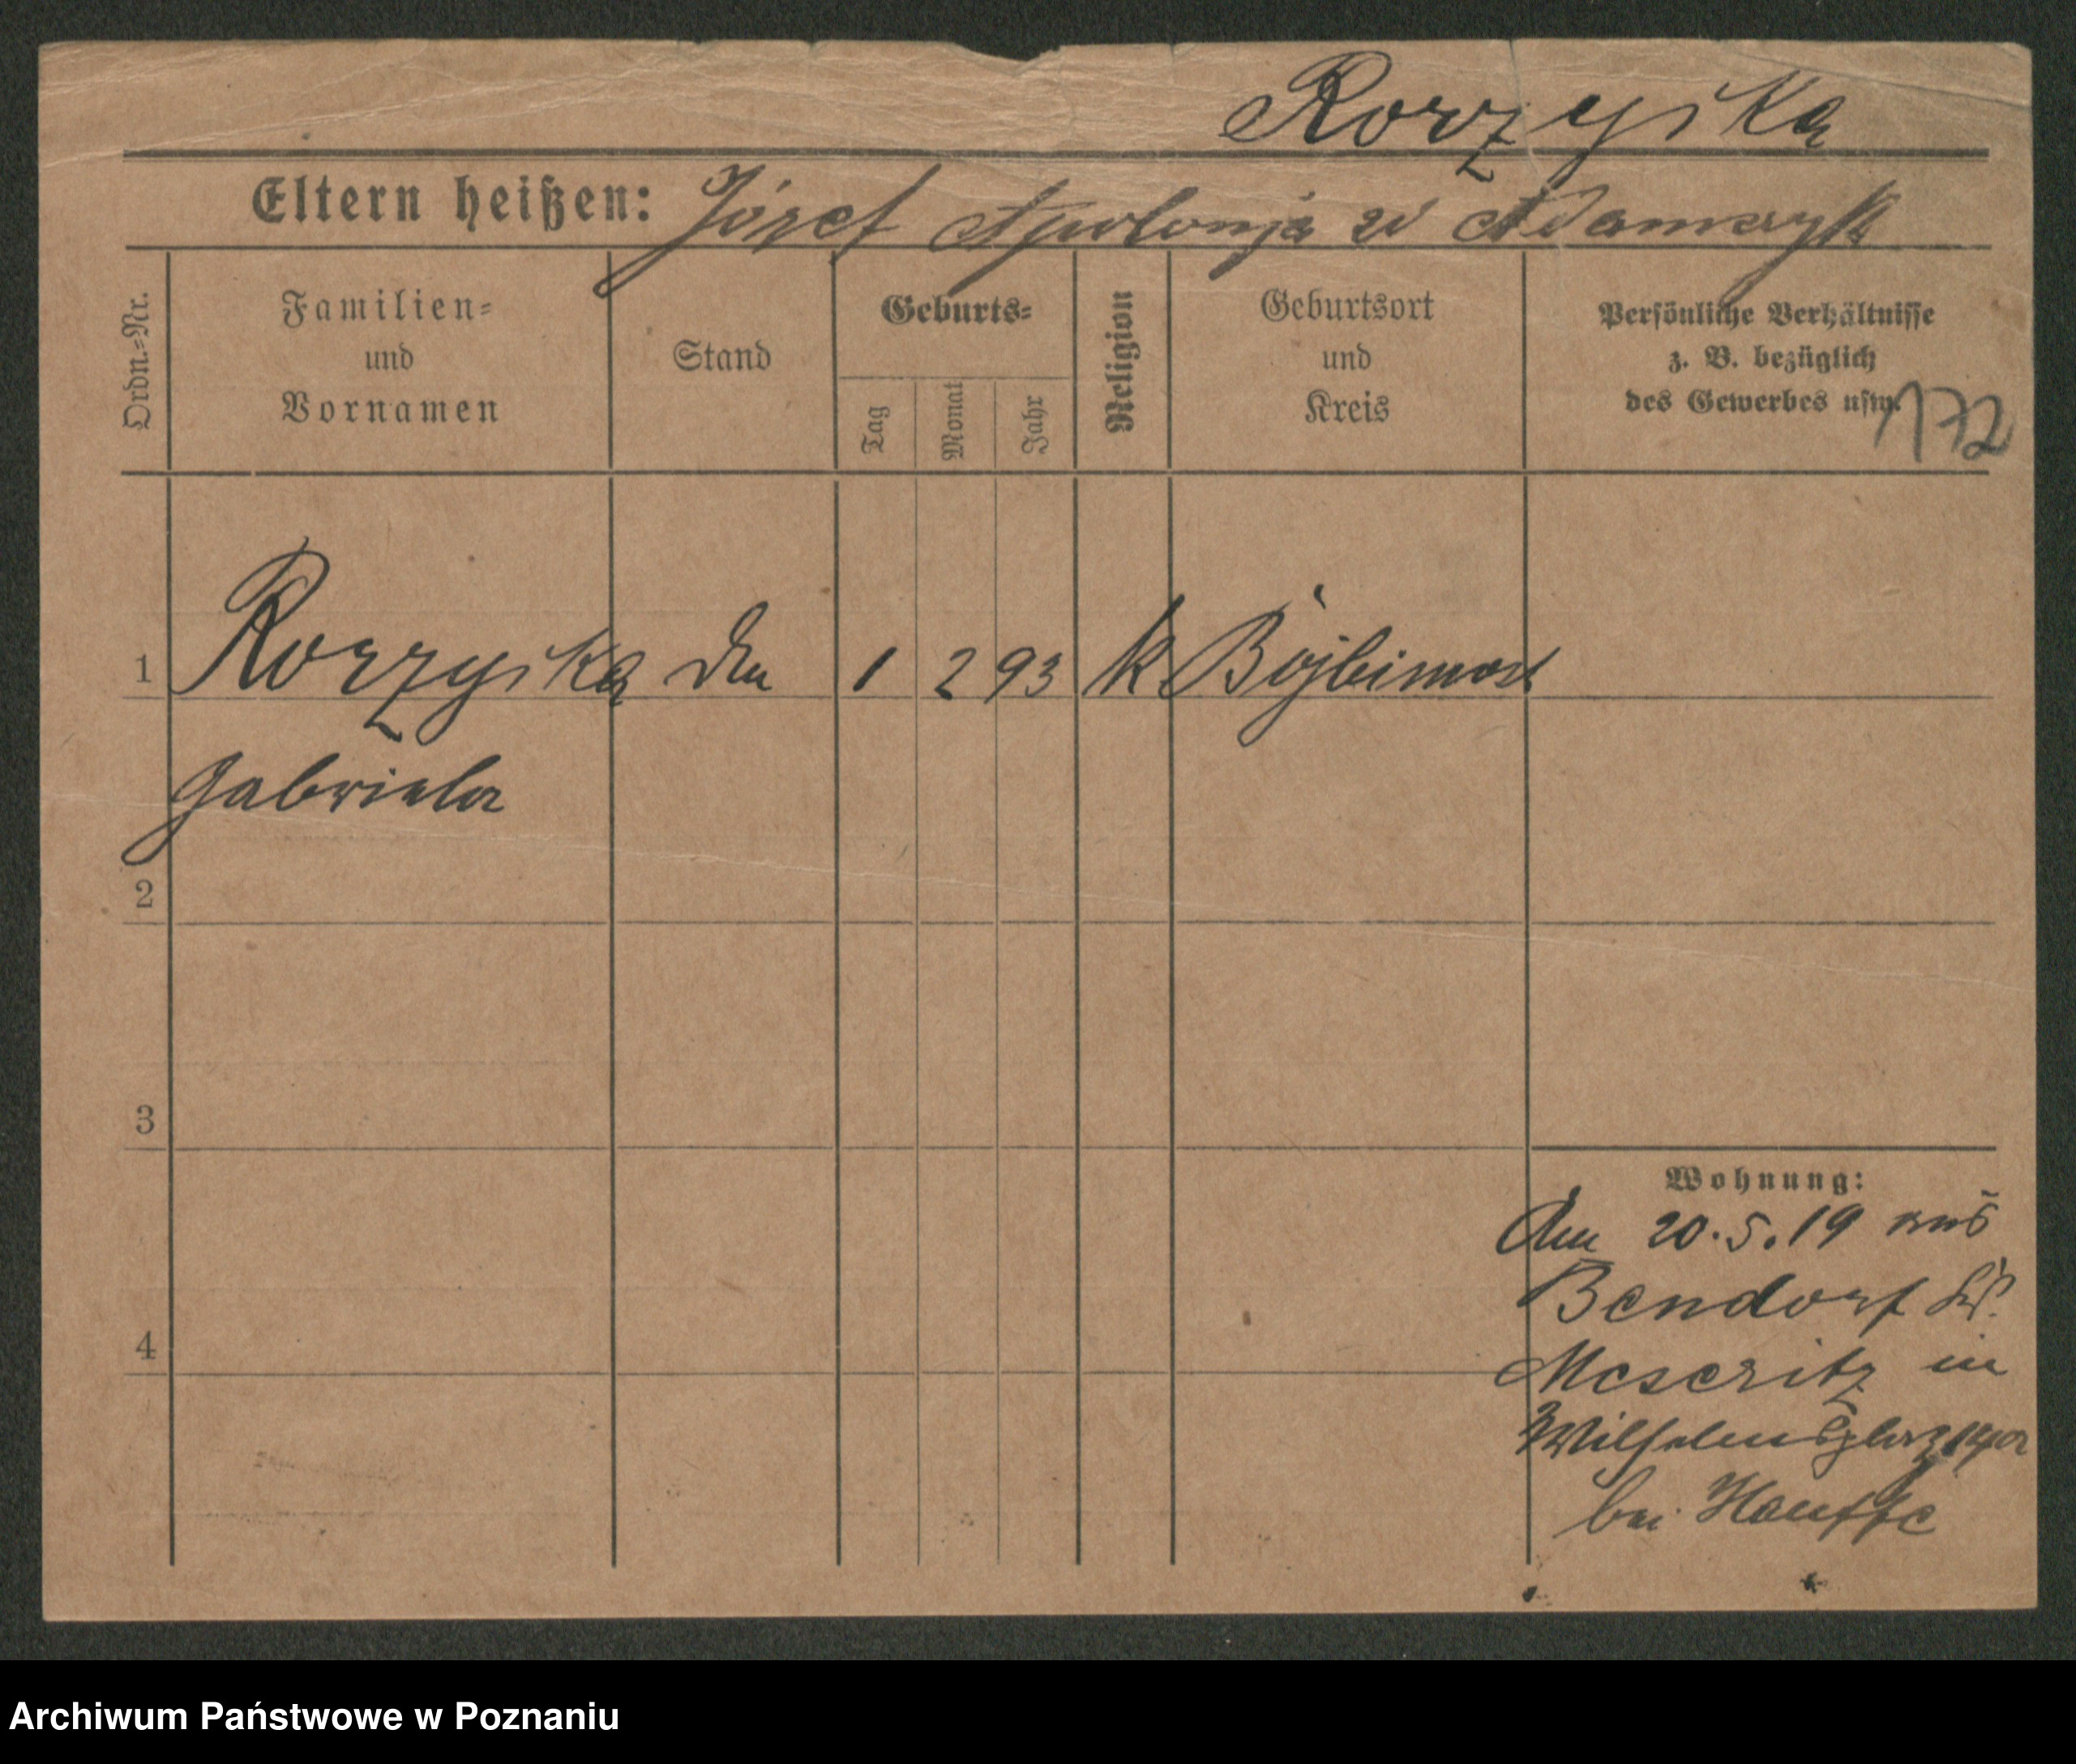 Rorzyska
Eltern heißen: Józef Apolonja zd Adamczyk
Ordn.-Nr.
Familien-
und
Vornamen
Stand
Geburts-
Tag
Monat
Jahr
Religion
Geburtsort
und
Kreis
Persönliche Verhältnisse
z. B. bezüglich
des Gewerbes usw.
172
1 Rorzyska 1 2 93 k
Gabriela
2
3
4
Wohnung:
Am 20.5.19 aus
Bendorf
Meseritz in
Wilhelmsplatz
bei Hauffe
Archiwum Państwowe w Poznaniu